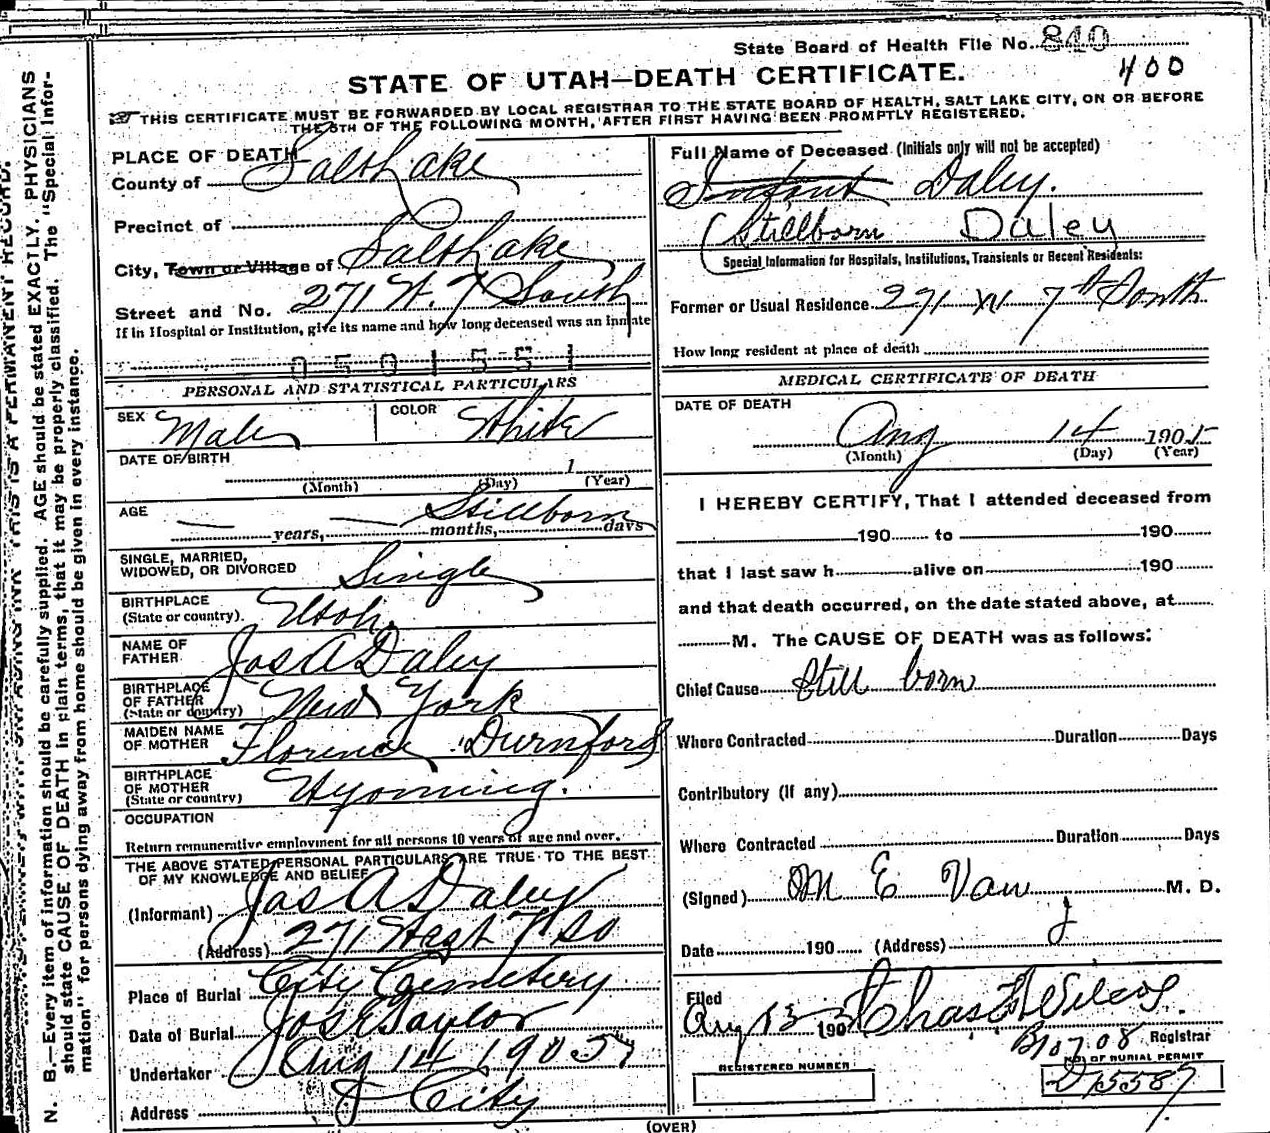 State Board of Health File No. 840
400
STATE OF UTAH—DEATH CERTIFICATE.
THIS CERTIFICATE MUST BE FORWARDED BY LOCAL REGISTRAR TO THE STATE BOARD OF HEALTH, SALT LAKE CITY, ON OR BEFORE
THE 5TH OF THE FOLLOWING MONTH, AFTER FIRST HAVING BEEN PROMPTLY REGISTERED.
N. B.—Every item of information should be carefully supplied. AGE should be stated EXACTLY. PHYSICIANS
should state CAUSE OF DEATH in plain terms, that it may be properly classified. The "Special Infor-
mation" for persons dying away from home should be given in every instance.
THIS IS A PERMANENT RECORD.
PLACE OF DEATH
County of Salt Lake
Precinct of
City, Town or Village of Salt Lake
Street and No. 271 W. 7 South
If in Hospital or Institution, give its name and how long deceased was an inmate
0501551
PERSONAL AND STATISTICAL PARTICULARS
SEX Male COLOR White
DATE OF BIRTH
1
(Month) (Day) (Year)
AGE Stillborn
— years, — months, days
SINGLE, MARRIED,
WIDOWED, OR DIVORCED Single
BIRTHPLACE
(State or country). Utah.
NAME OF
FATHER Jas A Daley
BIRTHPLACE
OF FATHER
(State or country) New York
MAIDEN NAME
OF MOTHER Florence Durnford
BIRTHPLACE
OF MOTHER
(State or country) Wyoming.
OCCUPATION
Return remunerative employment for all persons 10 years of age and over.
THE ABOVE STATED PERSONAL PARTICULARS ARE TRUE TO THE BEST
OF MY KNOWLEDGE AND BELIEF
(Informant) Jas A Daley
(Address) 271 West 7 So
Place of Burial City Cemetery
Date of Burial Jos E Taylor
Undertaker Aug 14 1905
Address City
Full Name of Deceased (Initials only will not be accepted)
Infant Daley.
(Stillborn Daley
Special Information for Hospitals, Institutions, Transients or Recent Residents:
Former or Usual Residence 271 W 7th South
How long resident at place of death
MEDICAL CERTIFICATE OF DEATH
DATE OF DEATH
Aug 14 1905
(Month) (Day) (Year)
I HEREBY CERTIFY, That I attended deceased from
190 to 190
that I last saw h alive on 190
and that death occurred, on the date stated above, at
M. The CAUSE OF DEATH was as follows:
Chief Cause Still born
Where Contracted Duration Days
Contributory (if any)
Where Contracted Duration Days
(Signed) M E Van M. D.
Date 190 (Address)
Filed
Aug 190 Chas Wilcox.
Registrar
B10708
NO. OF BURIAL PERMIT
REGISTERED NUMBER
D15587
(OVER)